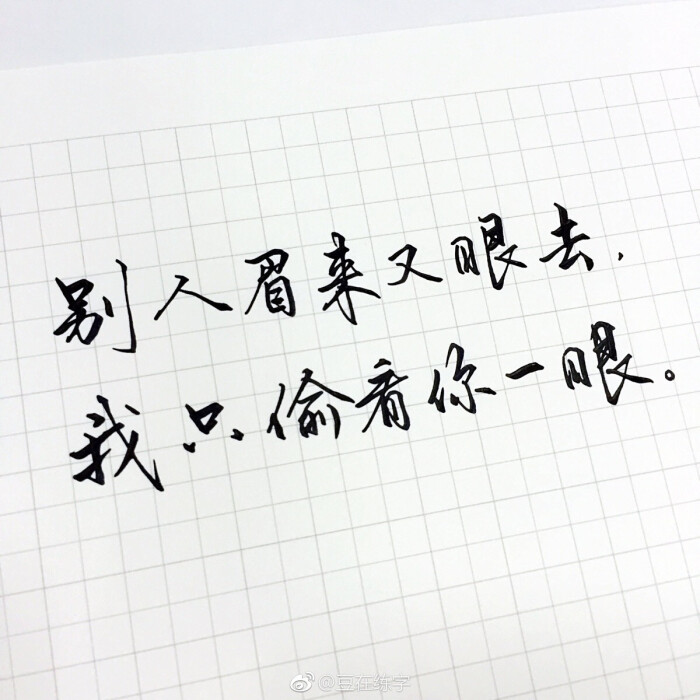 别人眉来又眼去，
我只偷看你一眼。
@豆在练字